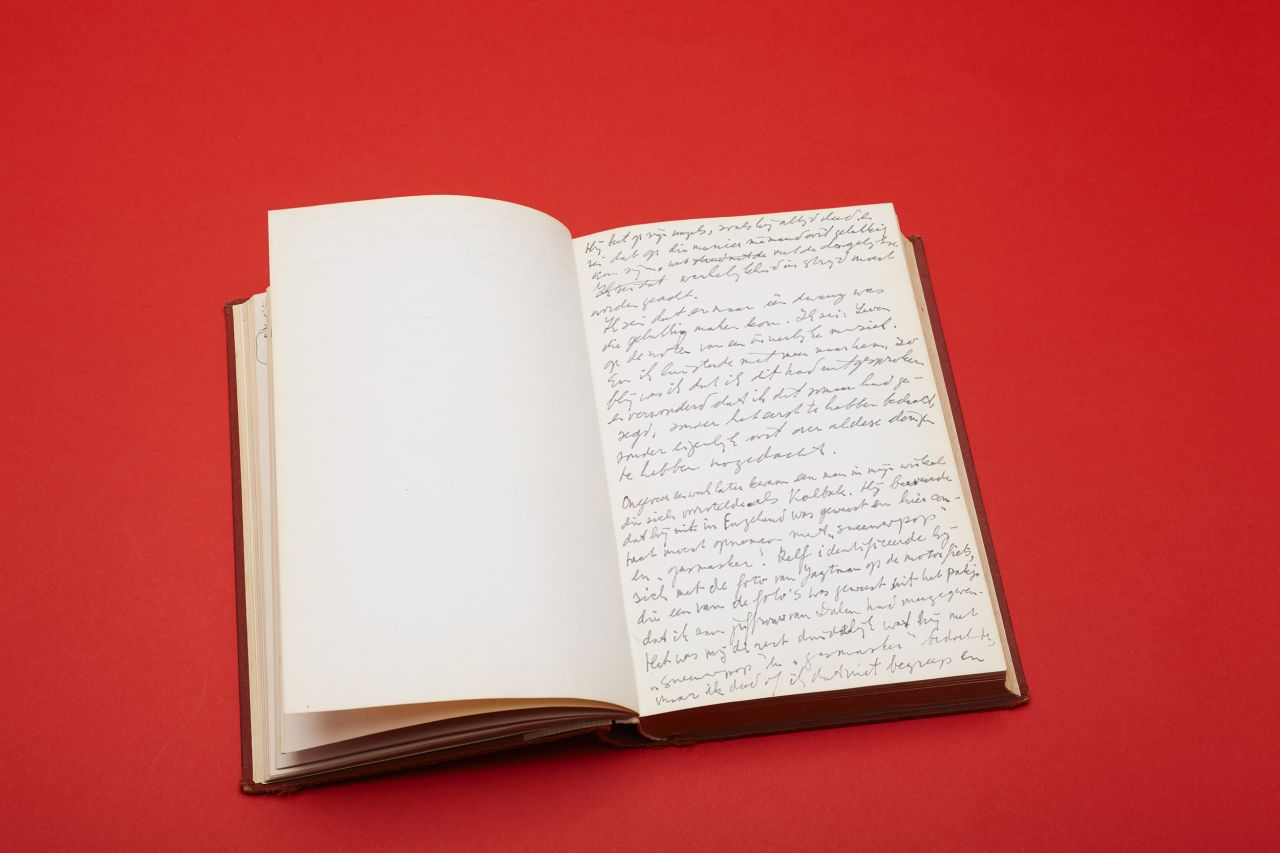 Hij beet op zijn nagels, zoals hij altijd deed en
zei dat op die manier niemand ooit gelukkig
kon zijn, wat met de dergelijkse
Ik zei dat werkelijkheid in strijd moest
worden geacht.
Ik zei dat er maar één dwang was
die gelukkig maken kon. Ik zei: Leven
op de noten van een innerlijke muziek.
En ik luisterde niet meer naar hem, zo
blij was ik dat ik dit had uitgesproken
en verwonderd dat ik dit zomaar had ge-
zegd, zonder het eerst te hebben bedacht,
zonder eigenlijk ooit over al deze dingen
te hebben nagedacht.
Ongeveer een week later kwam een man in mijn winkel
die zich voorstelde als Kolbak. Hij beweerde
dat hij in Engeland was geweest en hier con-
tact moest opnemen met „sneeuwpop"
en „gasmasker". Zelf identificeerde hij
zich met de foto van Jagtman op de motorfiets,
die een van de foto's was geweest uit het pakje
dat ik aan juffrouw van Dalen had meegegeven.
Het was mij direct duidelijk wat hij met
„sneeuwpop" en „gasmasker" bedoelde,
maar ik deed of ik dat niet begreep en